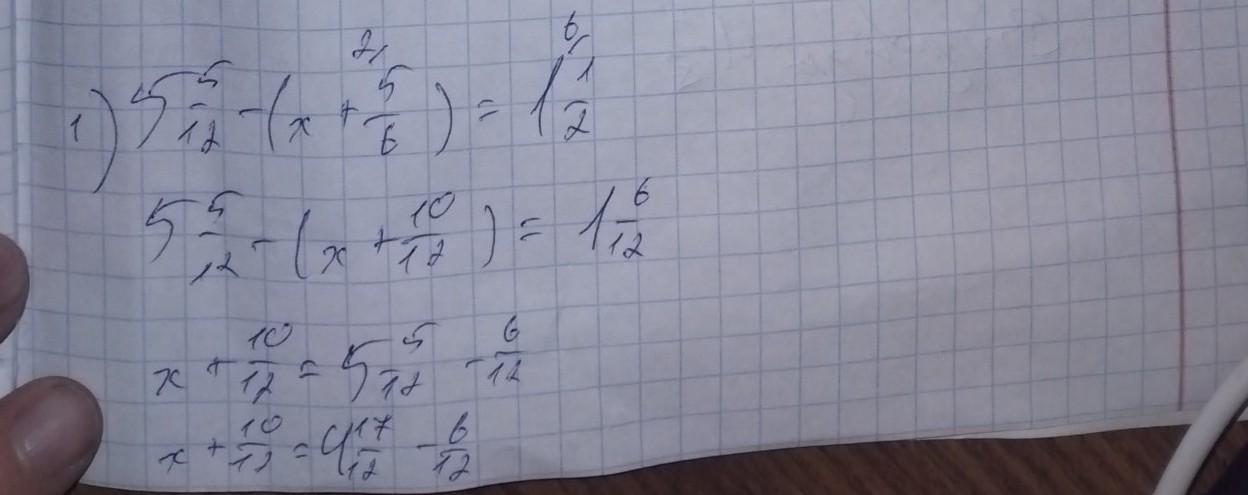 1) 5 5/12 - (x + 5/6) = 1 1/2
5 5/12 - (x + 10/12) = 1 6/12
x + 10/12 = 5 5/12 - 6/12
x + 10/12 = 4 17/12 - 6/12